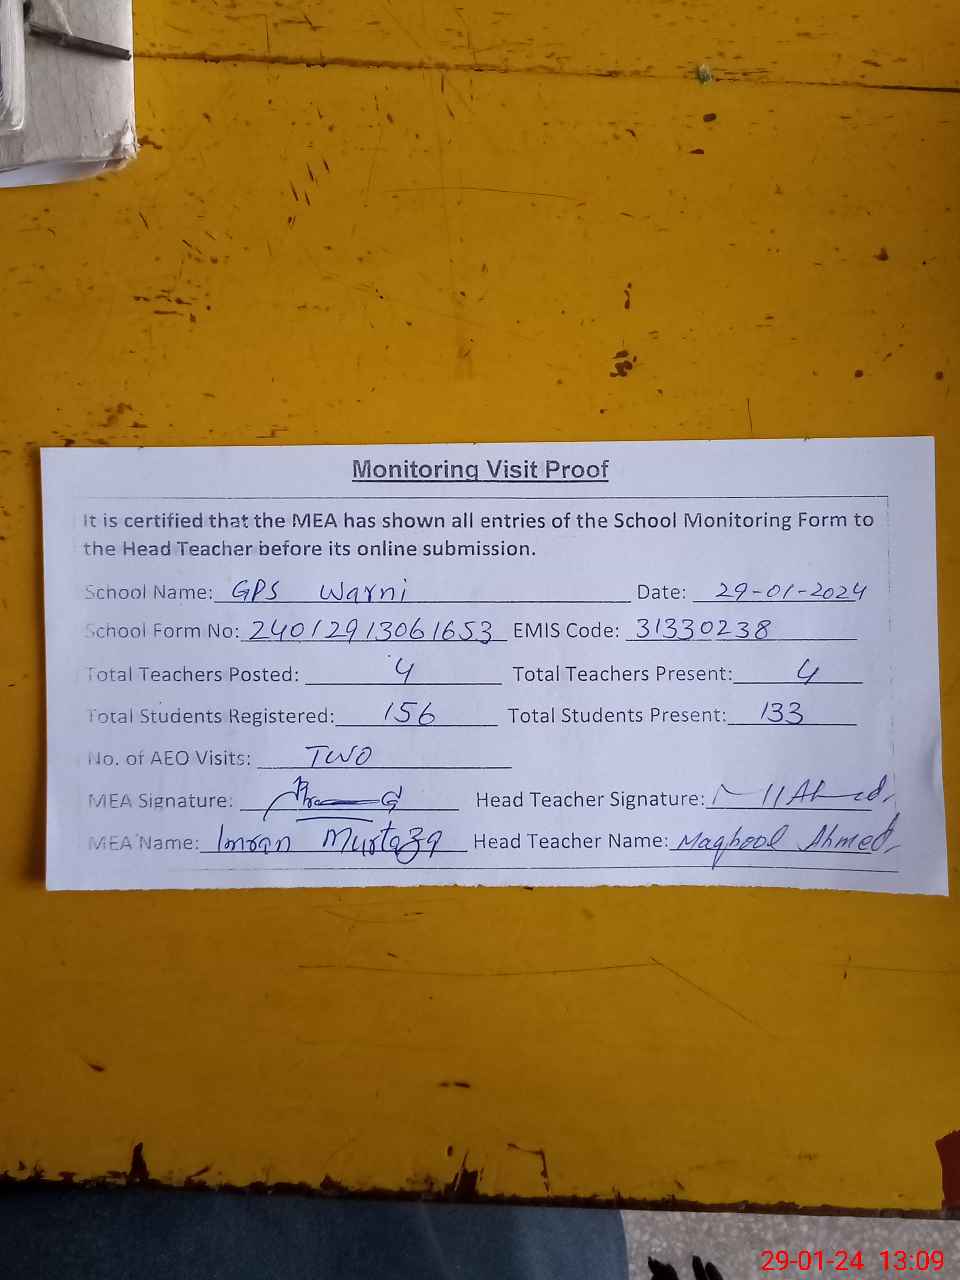 Monitoring Visit Proof
It is certified that the MEA has shown all entries of the School Monitoring Form to
the Head Teacher before its online submission.
School Name: GPS Warni Date: 29-01-2024
School Form No: 24012913061653 EMIS Code: 31330238
Total Teachers Posted: 4 Total Teachers Present: 4
Total Students Registered: 156 Total Students Present: 133
No. of AEO Visits: TWO
MEA Signature: Head Teacher Signature:
MEA Name: Imran Murtaza Head Teacher Name: Maqbool Ahmed
29-01-24 13:09